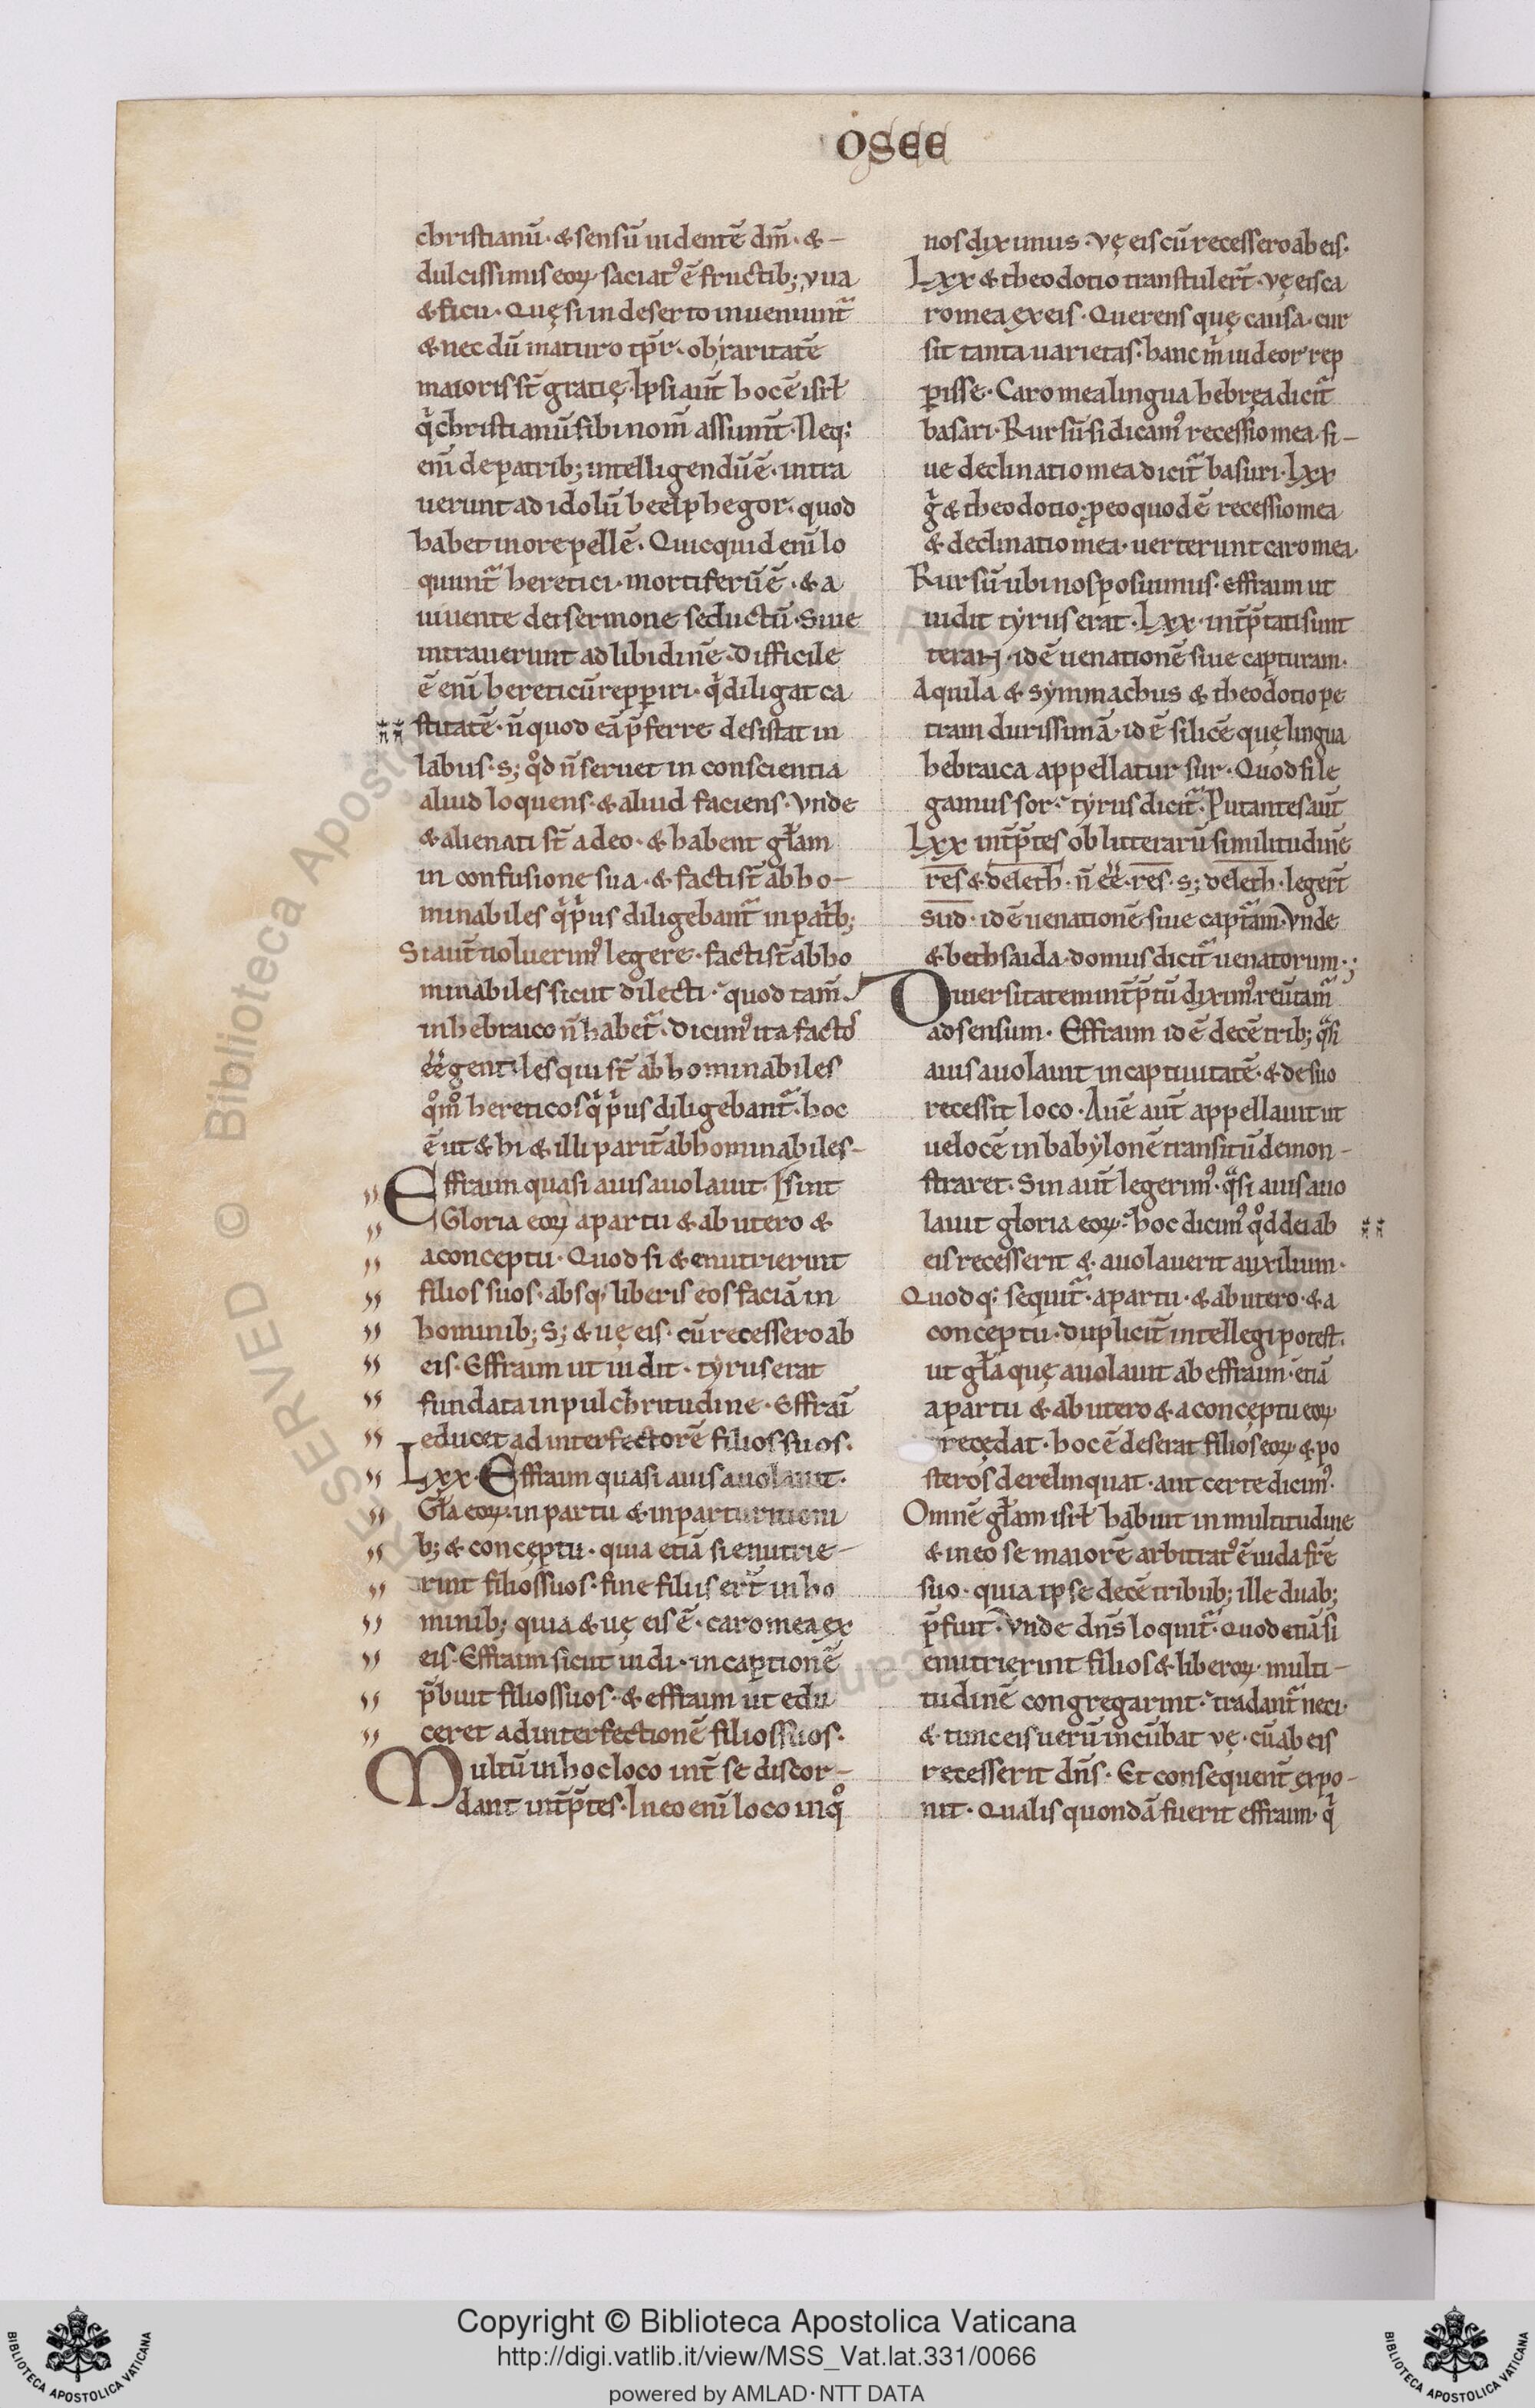 OSEE
christianū· & sensū uidentē dm̄· &-
dulcissimis eoꝝ· saciat᾽ ē fructib; vua
& ficu· Quę si in deserto inueniunt᷑
& nec dū maturo tp̄r· ob raritatē
maioris st̄ gratię· Ipsi aut̄ hoc ē isrł
q̇ christianū sibi nom̄ assumt̄· Neq;
eni᷑ de patrib; intelligendū ē· intra
uerunt ad idolū beelphegor· quod
habet in ore pellē· Quicquid eni᷑ lo
quunt᷑ heretici· mortiferū ē· & a
uiuente dei sermone seductū· Siue
intrauerunt ad libidinē· Difficile
ē eni᷑ hereticū repꝑiri· q̇ diligat ca
stitatē· n̄ quod eā p̄ferre desistat in
labiis· s; qd̊ n̄ seruet in conscientia
aliud loquens· & aliud faciens· Vnde
& alienati st̄ a deo· & habent głam
in confusione sua· & facti st̄ abho-
minabiles q̇ ṗus diligebant᷑ in patb̓;
Si aut̄ uoluerim᾽ legere· facti st̄ abho
minabiles sicut dilecti· quod tam̄
in hebraico n̄ habet᷑· dicim᾽ ita facto᾽
ee᷑ gentiles qui st̄ abhominabiles
qm̊o hereticos q̇ ṗus diligebant᷑· hoc
ē ut & hi & illi parit̄ abhominabiles-
Effraim quasi auis auolauit· sint
Gloria eoꝝ a partu & ab utero &
a conceptu· Quod si & enutrierint
filios suos· absq; liberis eos faciā in
hominib; S; & uę eis· cū recessero ab
eis· Effraim ut uidit· tyrus erat
fundata in pulchritudine· Effraī
educet ad interfectorē filios suos·
Lxx· Effraim quasi auis auolauit·
Gła eoꝝ· in partu & in parturitioni
b; & conceptu· quia etiā si enutrie-
rint filios suos· sine filiis ert̄ in ho
minib; quia & uę eis ē· caro mea ex
eis· Effraim sicut uidi· in captionē
p̄buit filios suos· & effraim ut edu
ceret ad interfectionē filios suos·
Multū in hoc loco int̄ se discor-
dant int̄p̄tes· In eo eni᷑ loco in qo̊
nos diximus· Vę eis cū recessero ab eis·
Lxx & theodotio transtulert̄· vę eis ca
ro mea ex eis· Querens quę causa· cur
sit tanta uarietas· hanc m̊ uideor rep
ꝑisse· Caro mea lingua hebręa dicit᷑
basari· Rursū si dicam᾽ recessio mea· si-
ue declinatio mea dicit᷑ basuri· Lxx
g̊ & theodotio· ꝓ eo quod ē recessio mea
& declinatio mea· uerterunt caro mea·
Rursū ubi nos posuimus· effraim ut
uidit tyrus erat· Lxx· int̄p̄tati sunt
teraH· id ē uenationē siue capturam·
Aquila & symmachus & theodotio pe
tram durissimā· id ē silicē quę lingua
hebraica appellatur sur· Quod si le
gamus sor· tyrus dicit᷑· Putantes aut̄
Lxx int̄p̄tes ob litterarū similitudinē
res & deleth· n̄ ee᷑· res· s; deleth· legert̄
sud· id ē uenationē siue capt᷑am· Vnde
& bethsaida· domus dicit᷑ uenatorum·;
Diuersitatem int̄p̄tū dixim᾽· reūtam᷑
ad sensum· Effraim id ē decē trib; q᷑si
auis auolauit in captiuitatē· & de suo
recessit loco· Auē aut̄ appellauit ut
uelocē in babylonē transitū demon-
straret· Sin aut̄ legerim᾽· q᷑si auis auo
lauit gloria eoꝝ· hoc dicim᾽ qd̊ dei ab
eis recesserit &· auolauerit auxilium·
Quod q; sequit᷑· a partu· & ab utero· & a
conceptu· duplicit̄ intellegi potest·
ut gła quę auolauit ab effraim· etiā
a partu & ab utero & a conceptu eoꝝ
recędat· hoc ē deserat filios eoꝝ & po
steros derelinquat· aut certe dicim᾽·
Omnē głam isrł habuit in multitudine
& in eo se maiorē arbitrat᾽ ē iuda frē
suo· quia ipse decē tribub; ille duab;
p̄fuit· Vnde dn̄s loquit᷑· Quod etiā si
enutrierint filios & liberoꝝ multi-
tudinē congregarint· tradant᷑ neci·
& tunc eis uerū incūbat vę· cū ab eis
recesserit dn̄s· Et consequent̄ expo-
nit· Qualis quondā fuerit effraim· q̇
Copyright © Biblioteca Apostolica Vaticana
http://digi.vatlib.it/view/MSS_Vat.lat.331/0066
powered by AMLAD·NTT DATA
BIBLIOTECA APOSTOLICA VATICANA
BIBLIOTECA APOSTOLICA VATICANA